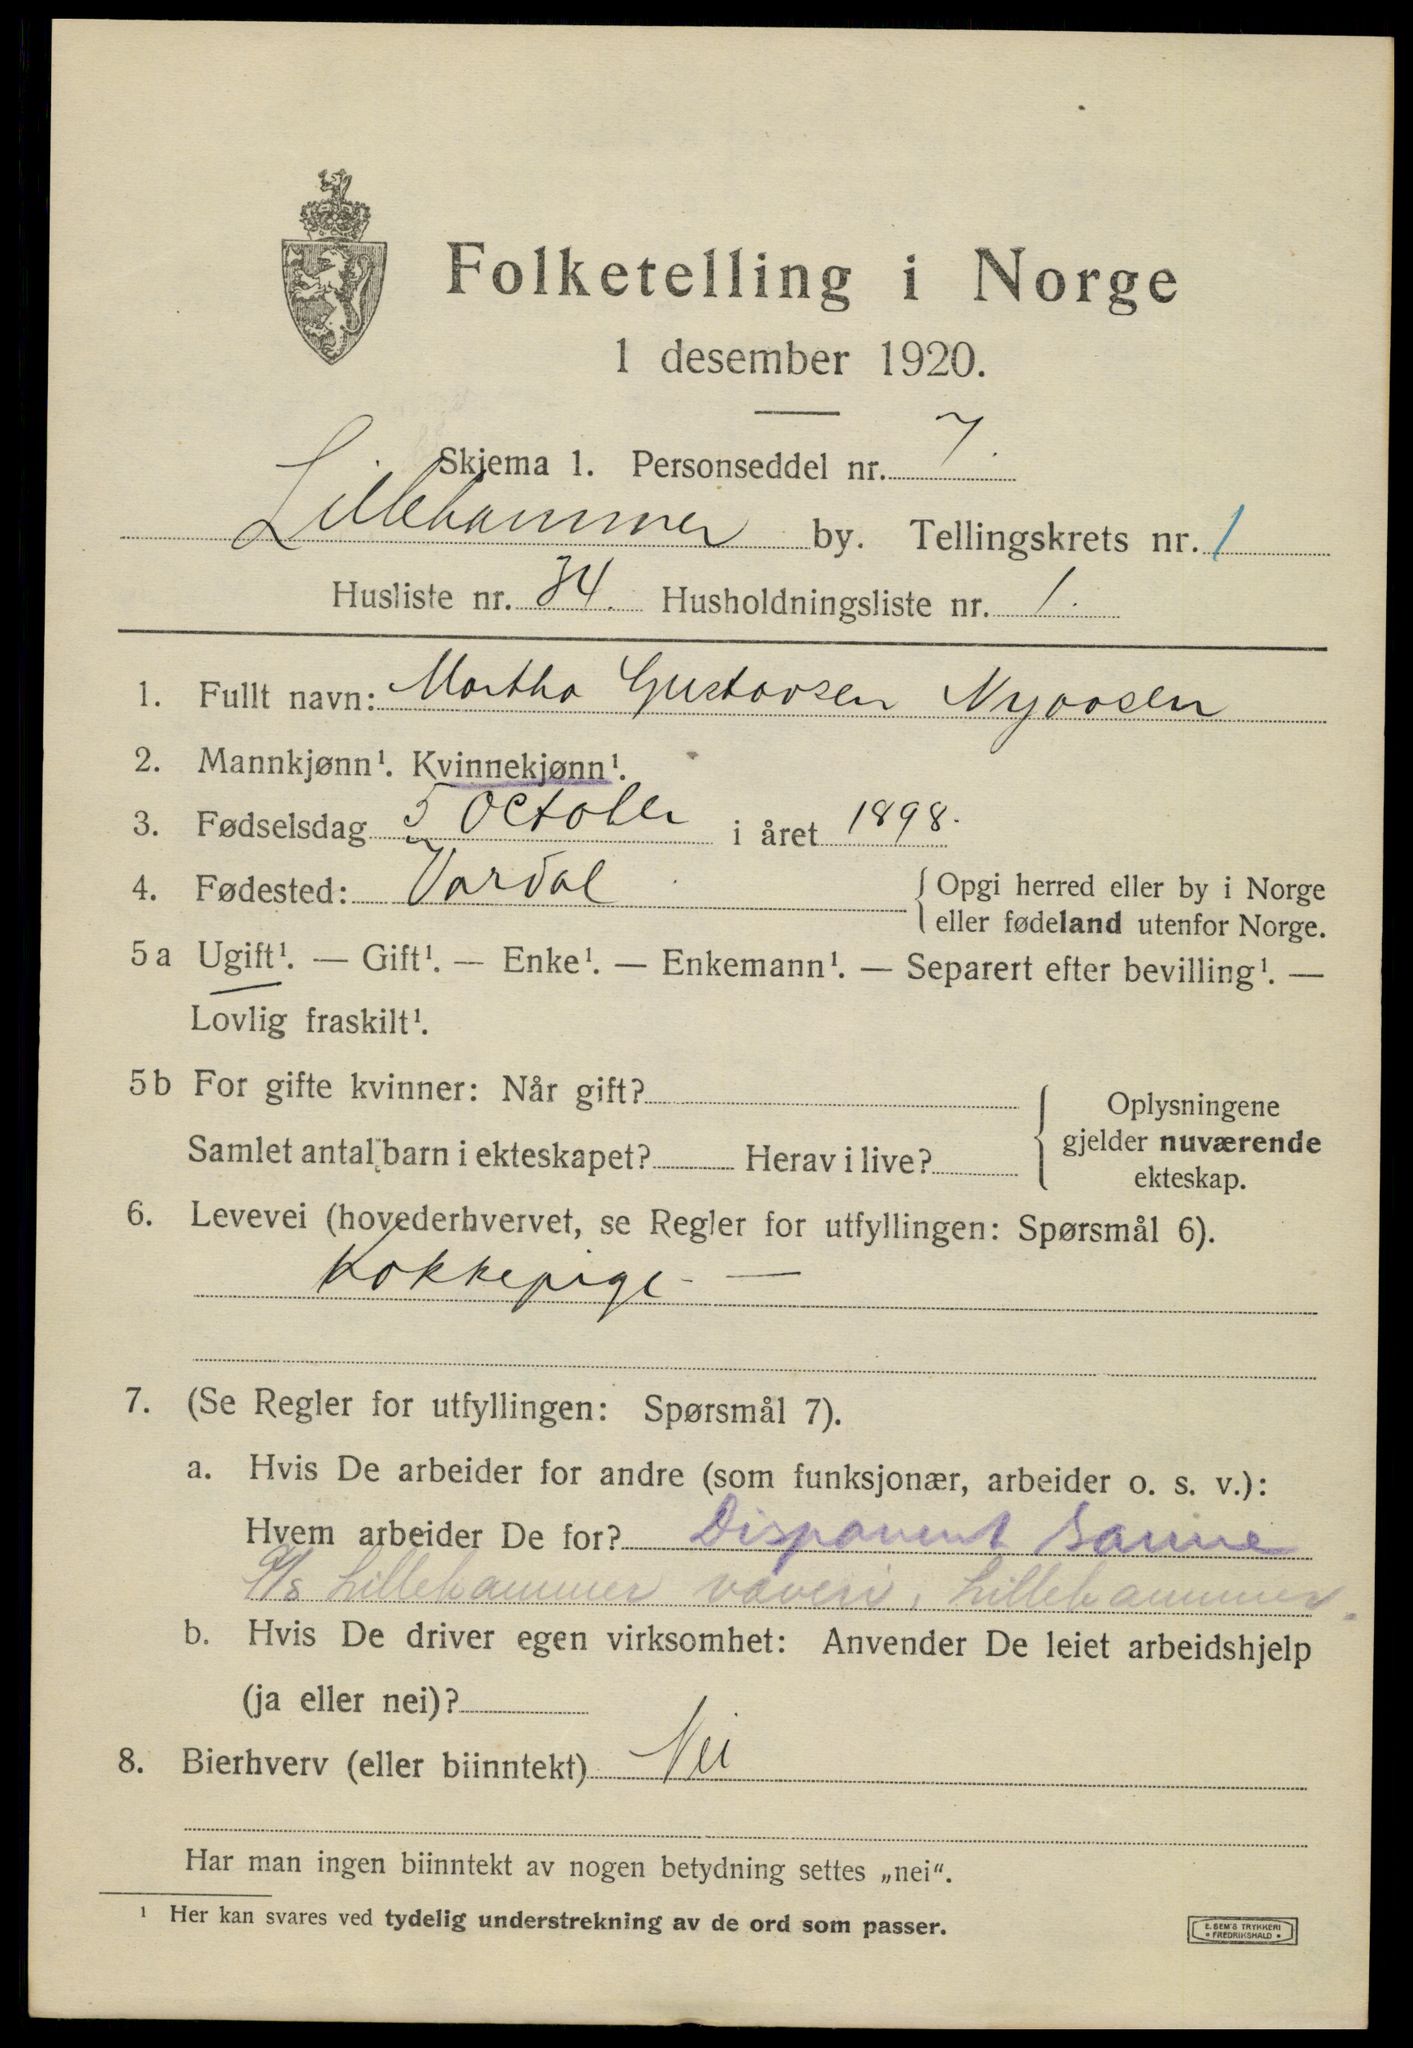 Folketelling i Norge
1 desember 1920.
Skjema 1. Personseddel nr. 7.
Lillehammer by. Tellingskrets nr. 1
Husliste nr. 34. Husholdningsliste nr. 1.
1. Fullt navn: Martha Gustavsen
2. Mannkjønn¹. Kvinnekjønn¹.
3. Fødselsdag 5 October i året 1898.
4. Fødested: Vardal { Opgi herred eller by i Norge
eller fødeland utenfor Norge.
5a Ugift¹. — Gift¹. — Enke¹. — Enkemann¹. — Separert efter bevilling¹. —
Lovlig fraskilt¹.
5b For gifte kvinner: Når gift? { Oplysningene
gjelder nuværende
ekteskap.
Samlet antal barn i ekteskapet? Herav i live?
6. Levevei (hovederhvervet, se Regler for utfyllingen: Spørsmål 6).
Kokkepige —
7. (Se Regler for utfyllingen: Spørsmål 7).
a. Hvis De arbeider for andre (som funksjonær, arbeider o. s. v.):
Hvem arbeider De for? Disponent Sanne
A/s Lillehammer væveri, Lillehammer.
b. Hvis De driver egen virksomhet: Anvender De leiet arbeidshjelp
(ja eller nei)?
8. Bierhverv (eller biinntekt) Nei
Har man ingen biinntekt av nogen betydning settes „nei“.
¹ Her kan svares ved tydelig understrekning av de ord som passer.
E. SEM'S TRYKKERI
• FREDRIKSHALD •